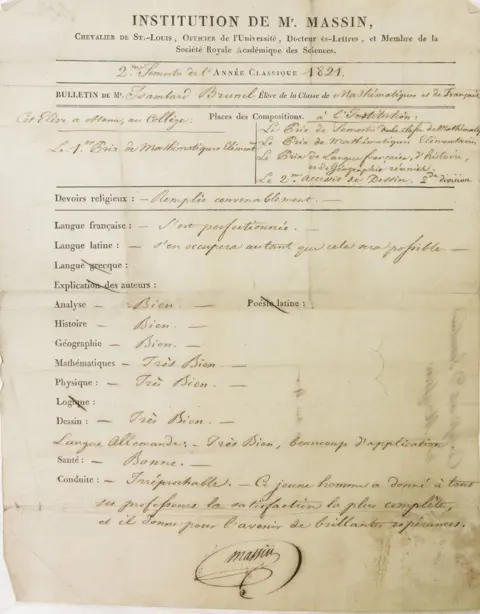 INSTITUTION DE Mr. MASSIN,
Chevalier de St.-Louis, Officier de l'Université, Docteur ès-Lettres, et Membre de la
Société Royale Académique des Sciences.
2me Semestre de l'Année Classique 1821.
BULLETIN DE Mr. Isambard Brunel Élève de la Classe de Mathématiques et de Français
Cet Elève a obtenu, au Collège: Places des Compositions. à l'Institution:
Le 1er Prix de Mathématiques Elément. Le Prix de Semestre de la classe de Mathémat.
Le Prix de Mathématiques Elémentaires,
Le Prix de Langue française, d'histoire,
et de Géographie réunies.
Le 2me Accessit de Dessin. 2de division
Devoirs religieux : — Remplis convenablement. —
Langue française : — S'est perfectionné. —
Langue latine : — s'en occupera autant que cela sera possible —
Langue grecque :
Explication des auteurs :
Analyse — Bien. — Poésie latine :
Histoire — Bien. —
Géographie — Bien. —
Mathématiques — Très Bien —
Physique : — Très Bien. —
Logique :
Dessin : — Très Bien. —
Langue Allemande : — Très Bien, beaucoup d'application.
Santé : — Bonne. —
Conduite : — Irréprochable. — Ce jeune homme a donné à tous
ses professeurs la satisfaction la plus complète,
et il donne pour l'avenir de brillantes espérances.
Massin